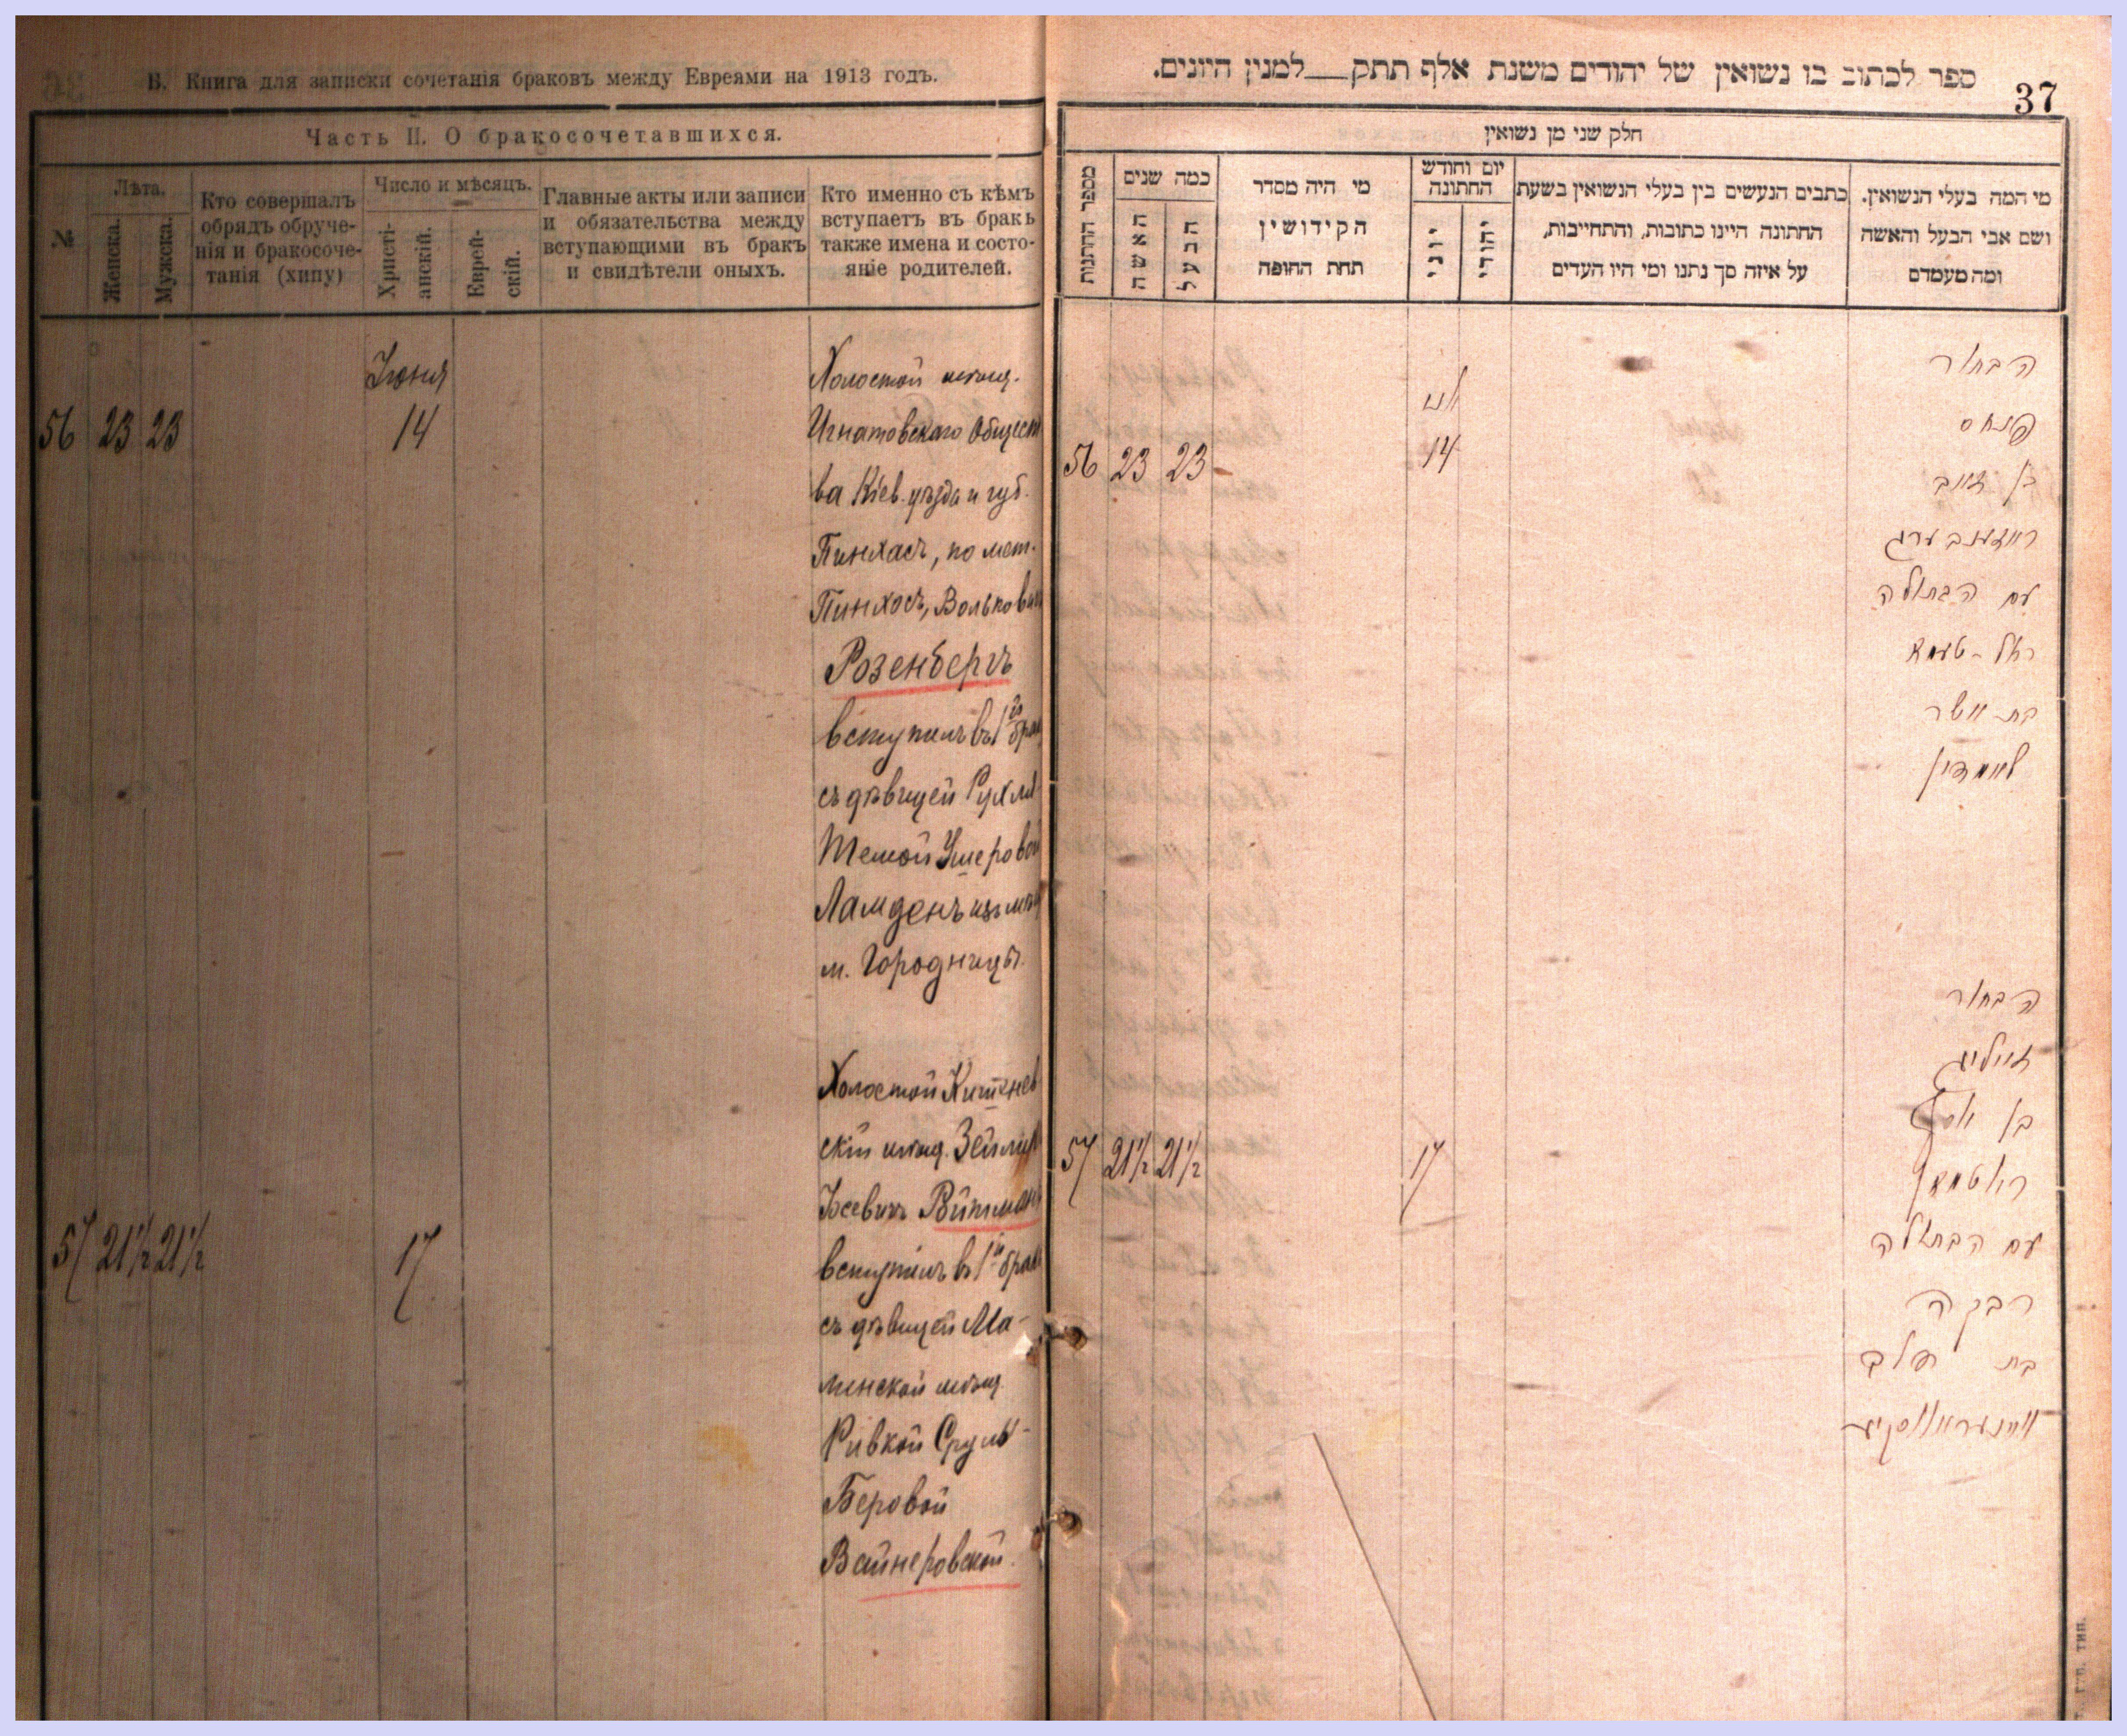 В. Книга для записки сочетанія браковъ между Евреями на 1913 годъ.
Часть II. О бракосочетавшихся.
№
Лѣта.
Женска.
Мужска.
Кто совершалъ
обрядъ обруче-
нія и бракосоче-
танія (хипу)
Число и мѣсяцъ.
Христі-
анскій.
Еврей-
скій.
Главные акты или записи
и обязательства между
вступающими въ бракъ
и свидѣтели оныхъ.
Кто именно съ кѣмъ
вступаетъ въ бракъ
также имена и состо-
яніе родителей.
Іюня
56 23 23 14
Холостой мѣщ.
Игнатовскаго Общест
ва Кіев. уѣзда и губ.
Пинхасъ, по мет.
Пинхосъ, Вольковичъ
Розенбергъ
вступилъ въ 1й бракъ
съ дѣвицей Рухлей
Темой Ушеровой
Ламденъ изъ мѣщ
м. Городницы.
57 21½ 21½ 17
Холостой Кишинев
скій мѣщ. Зейлик
Іосевичъ Ройтманъ
вступилъ въ 1й бракъ
съ дѣвицей Ма-
линской мѣщ.
Ривкой Сруль-
Беровой
Вайнеровской.
ספר לכתוב בו נשואין של יהודים משנת אלף תתק__למנין היונים.
37
חלק שני מן נשואין
מספר החתנות
כמה שנים
האשה
הבעל
מי היה מסדר
הקידושין
תחת החופה
יום וחודש
החתונה
יוני
יהודי
כתבים הנעשים בין בעלי הנשואין בשעת
החתונה היינו כתובות, והתחייבות,
על איזה סך נתנו ומי היו העדים
מי המה בעלי הנשואין.
ושם אבי הבעל והאשה
ומה מעמדם
56 23 23 14
הבחור
פנחס
בן זאב
ראזענבערג
עם הבתולה
רחל-טעמא
בת אשר
לאמדין
57 21½ 21½ 17
הבחור
זייליג
בן יוסף
ראטמאן
עם הבתולה
רבקה
בת
וויינעראווסקיע